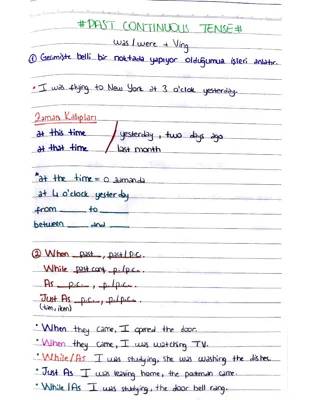 #PAST CONTINUOUS TENSE#
was/were + Ving
① Geçmişte belli bir noktada yapıyor olduğumuz işleri anlatır.
* I was flying to New York at 3 o'clock yesterday.
Zaman Kalıpları
at this time / yesterday, two days ago
at that time / last month
*at the time = o zamanda
at 4 o'clock yesterday
from ___ to ___
between ___ and ___
② When past, past/p.c.
While past cont, p./p.c.
As p.c., p./p.c.
Just As p.c., p./p.c.
(tam, iken)
* When they came, I opened the door.
* When they came, I was watching TV.
* While/As I was studying, she was washing the dishes.
* Just As I was leaving home, the postman came.
* While/As I was studying, the door bell rang.